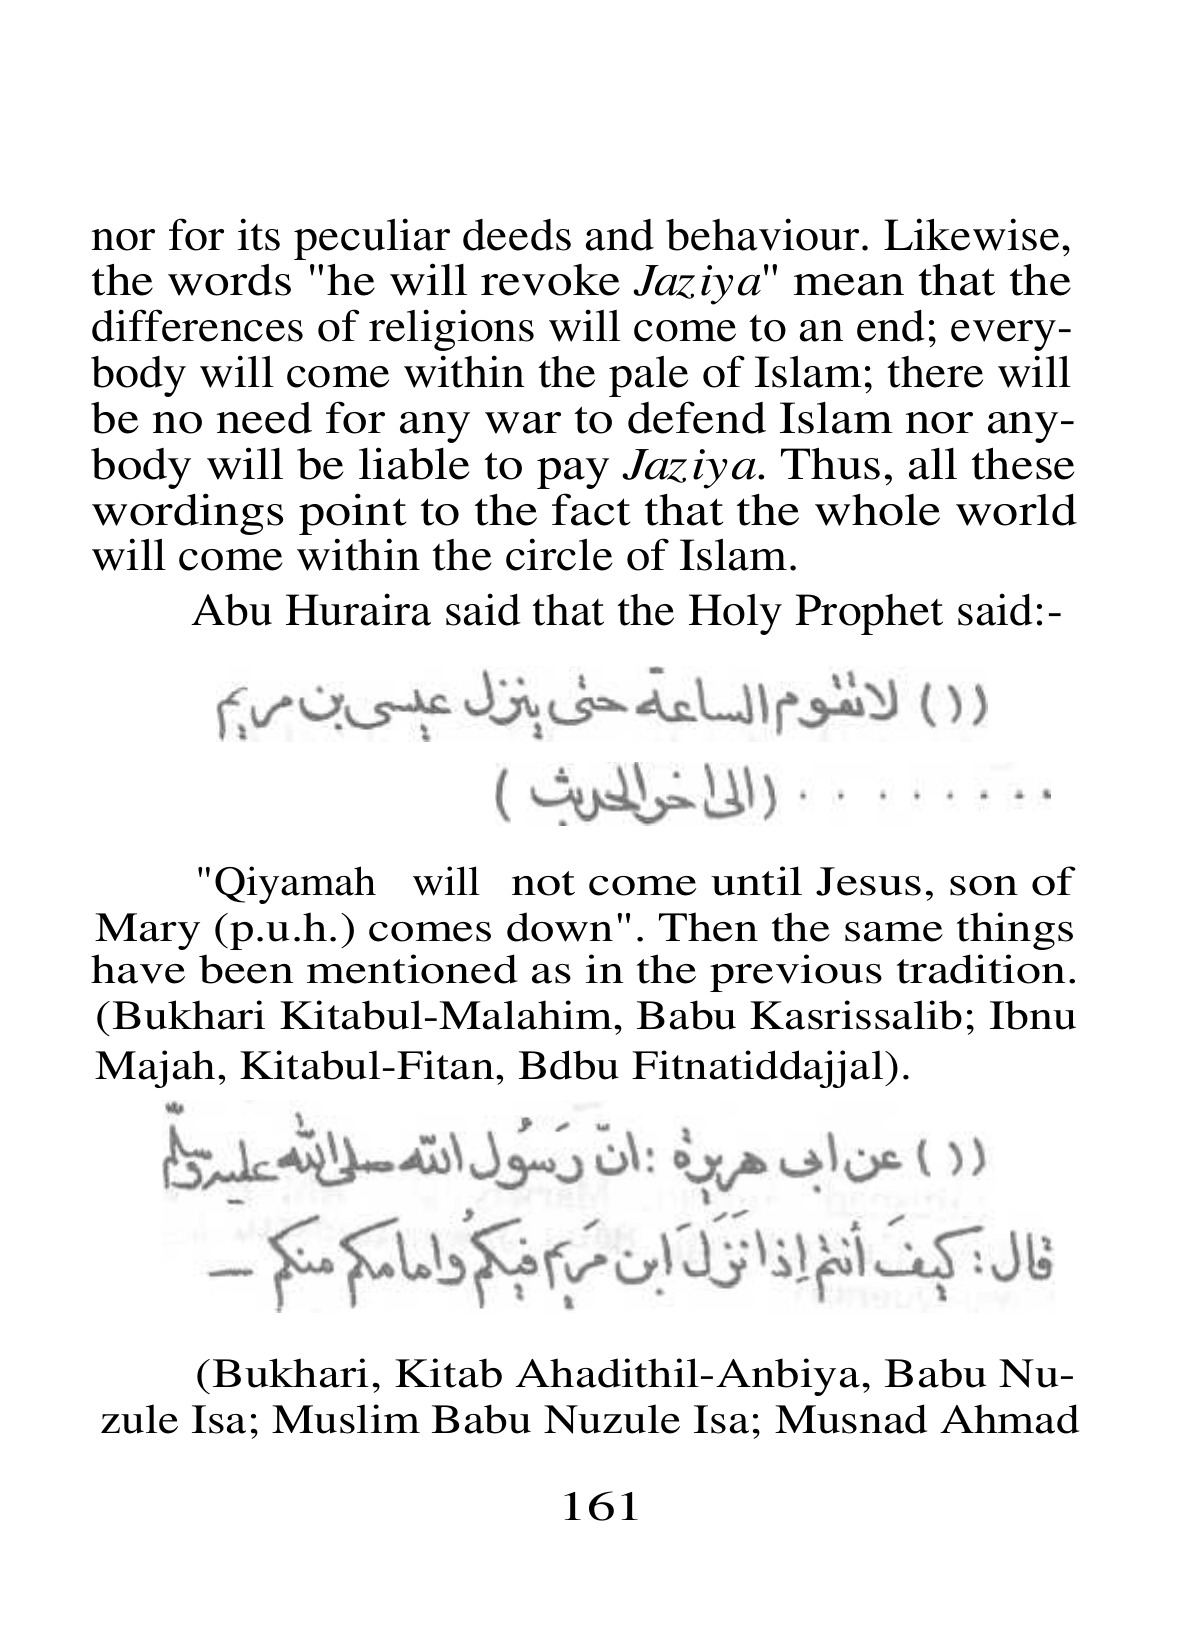 nor for its peculiar deeds and behaviour. Likewise,
the words "he will revoke Jaziya" mean that the
differences of religions will come to an end; every-
body will come within the pale of Islam; there will
be no need for any war to defend Islam nor any-
body will be liable to pay Jaziya. Thus, all these
wordings point to the fact that the whole world
will come within the circle of Islam.
Abu Huraira said that the Holy Prophet said:-
(( ) لا تقوم الساعة حتى ينزل عيسى بن مريم
. . . . . . . . (الى اخر الحديث )
"Qiyamah will not come until Jesus, son of
Mary (p.u.h.) comes down". Then the same things
have been mentioned as in the previous tradition.
(Bukhari Kitabul-Malahim, Babu Kasrissalib; Ibnu
Majah, Kitabul-Fitan, Bdbu Fitnatiddajjal).
(( ) عن ابى هريرة : انّ رَسُول الله صلى الله عليه وسلّم
قال : كيفَ أنتم إذا نَزَلَ ابن مَريم فيكُم وامامكم منكم —
(Bukhari, Kitab Ahadithil-Anbiya, Babu Nu-
zule Isa; Muslim Babu Nuzule Isa; Musnad Ahmad
161